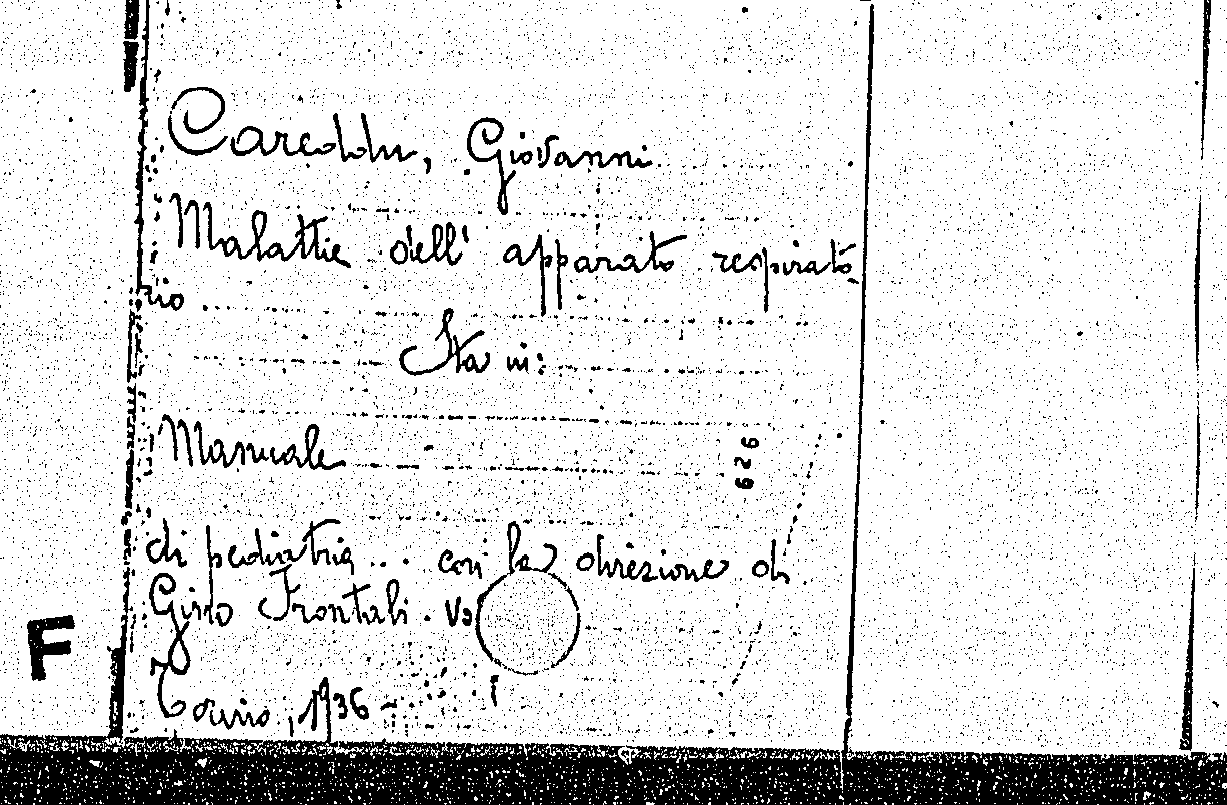 Careddu, Giovanni.
Malattie dell' apparato respirato
rio.
Sta in:
Manuale
626
di pediatria... con la direzione di
Gino Frontali.
F
Torino, 1936 -